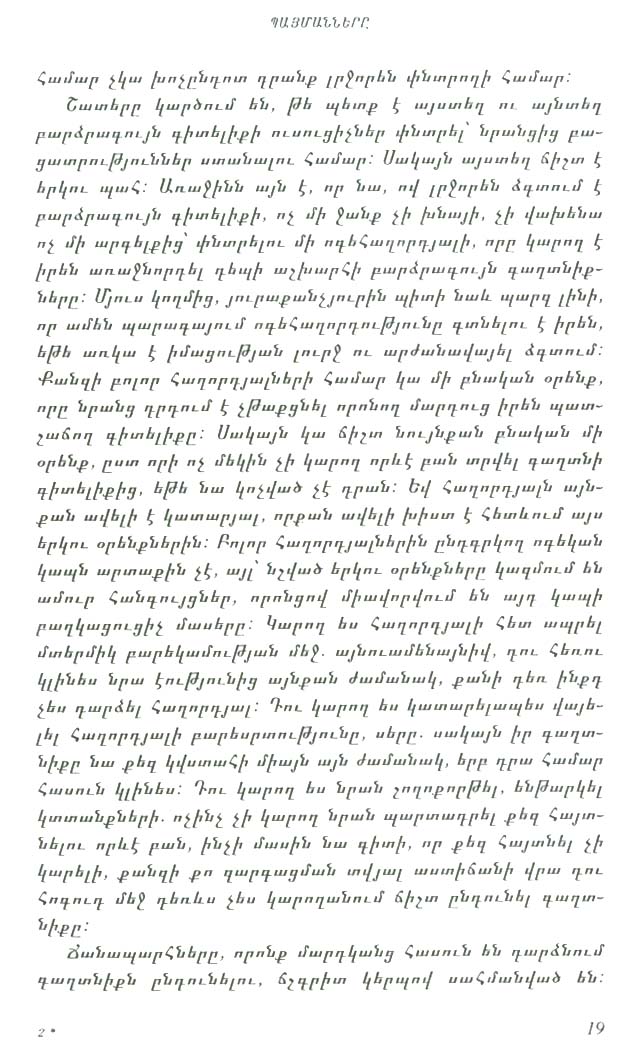 ՊԱՅՄԱՆՆԵՐԸ
համար չկա խոչընդոտ դրանք լրջորեն փնտրողի համար:
Շատերը կարծում են, թե պետք է այստեղ ու այնտեղ
բարձրագույն գիտելիքի ուսուցիչներ փնտրել՝ նրանցից բա-
ցատրություններ ստանալու համար: Սակայն այստեղ ճիշտ է
երկու պահ: Առաջինն այն է, որ նա, ով լրջորեն ձգտում է
բարձրագույն գիտելիքի, ոչ մի ջանք չի խնայի, չի վախենա
ոչ մի արգելքից՝ փնտրելու մի ոգեհաղորդյալի, որը կարող է
իրեն առաջնորդել դեպի աշխարհի բարձրագույն գաղտնիք-
ները: Մյուս կողմից, յուրաքանչյուրին պիտի նաև պարզ լինի,
որ ամեն պարագայում ոգեհաղորդությունը գտնելու է իրեն,
եթե առկա է իմացության լուրջ ու արժանավայել ձգտում:
Քանզի բոլոր հաղորդյալների համար կա մի բնական օրենք,
որը նրանց դրդում է չթաքցնել որոնող մարդուց իրեն պատ-
շաճող գիտելիքը: Սակայն կա ճիշտ նույնքան բնական մի
օրենք, ըստ որի ոչ մեկին չի կարող որևէ բան տրվել գաղտնի
գիտելիքից, եթե նա կոչված չէ դրան: Եվ հաղորդյալն այն-
քան ավելի է կատարյալ, որքան ավելի խիստ է հետևում այս
երկու օրենքներին: Բոլոր հաղորդյալներին ընդգրկող ոգեկան
կապն արտաքին չէ, այլ՝ նշված երկու օրենքները կազմում են
ամուր հանգույցներ, որոնցով միավորվում են այդ կապի
բաղկացուցիչ մասերը: Կարող ես հաղորդյալի հետ ապրել
մտերմիկ բարեկամության մեջ. այնուամենայնիվ, դու հեռու
կլինես նրա էությունից այնքան ժամանակ, քանի դեռ ինքդ
չես դարձել հաղորդյալ: Դու կարող ես կատարելապես վայե-
լել հաղորդյալի բարեսրտությունը, սերը. սակայն իր գաղտ-
նիքը նա քեզ կվստահի միայն այն ժամանակ, երբ դրա համար
հասուն կլինես: Դու կարող ես նրան շողոքորթել, ենթարկել
կտտանքների. ոչինչ չի կարող նրան պարտադրել քեզ հայտ-
նելու որևէ բան, ինչի մասին նա գիտի, որ քեզ հայտնել չի
կարելի, քանզի քո զարգացման տվյալ աստիճանի վրա դու
հոգուդ մեջ դեռևս չես կարողանում ճիշտ ընդունել գաղտ-
նիքը:
Ճանապարհները, որոնք մարդկանց հասուն են դարձնում
գաղտնիքն ընդունելու, ճշգրիտ կերպով սահմանված են:
2 *
19